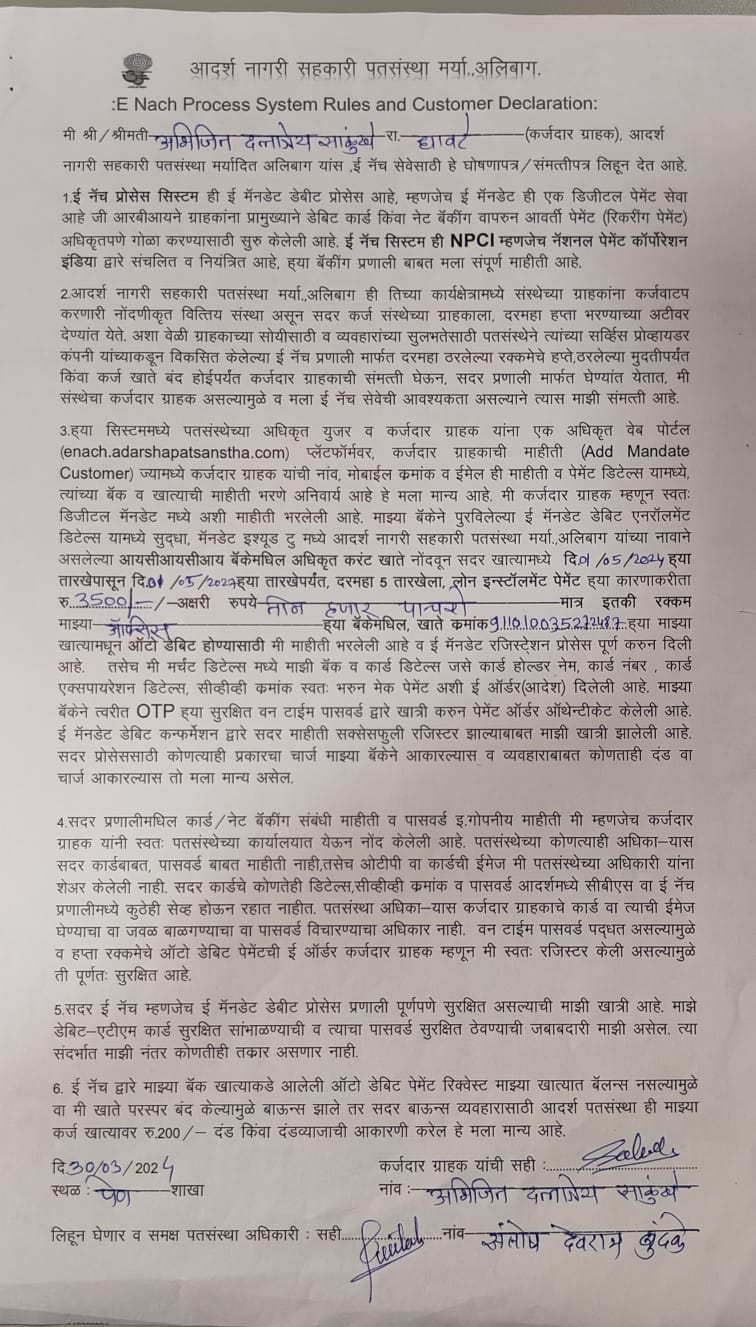 आदर्श नागरी सहकारी पतसंस्था मर्या.,अलिबाग.
:E Nach Process System Rules and Customer Declaration:
मी श्री/श्रीमती अभिजित दत्तात्रेय साळुंखे रा. द्यावटे (कर्जदार ग्राहक), आदर्श
नागरी सहकारी पतसंस्था मर्यादित अलिबाग यांस ,ई नॅच सेवेसाठी हे घोषणापत्र/संमत्तीपत्र लिहून देत आहे.
1.ई नॅच प्रोसेस सिस्टिम ही ई मॅनडेट डेबीट प्रोसेस आहे, म्हणजेच ई मॅनडेट ही एक डिजिटल पेमेंट सेवा
आहे जी आरबीआयने ग्राहकांना प्रामुख्याने डेबिट कार्ड किंवा नेट बॅकींग वापरुन आवर्ती पेमेंट (रिकरींग पेमेंट)
अधिकृतपणे गोळा करण्यासाठी सुरु केलेली आहे. ई नॅच सिस्टिम ही NPCI म्हणजेच नॅशनल पेमेंट कॉर्पोरेशन
इंडिया द्वारे संचलित व नियंत्रित आहे, ह्या बॅकींग प्रणाली बाबत मला संपूर्ण माहीती आहे.
2.आदर्श नागरी सहकारी पतसंस्था मर्या.,अलिबाग ही तिच्या कार्यक्षेत्रामध्ये संस्थेच्या ग्राहकांना कर्जवाटप
करणारी नोंदणीकृत वित्तिय संस्था असून सदर कर्ज संस्थेच्या ग्राहकाला, दरमहा हप्ता भरण्याच्या अटीवर
देण्यांत येते. अशा वेळी ग्राहकाच्या सोयीसाठी व व्यवहारांच्या सुलभतेसाठी पतसंस्थेने त्यांच्या सर्व्हिस प्रोव्हायडर
कंपनी यांच्याकडून विकसित केलेल्या ई नॅच प्रणाली मार्फत दरमहा ठरलेल्या रक्कमेचे हप्ते,ठरलेल्या मुदतीपर्यंत
किंवा कर्ज खाते बंद होईपर्यंत कर्जदार ग्राहकाची संमत्ती घेऊन, सदर प्रणाली मार्फत घेण्यांत येतात, मी
संस्थेचा कर्जदार ग्राहक असल्यामुळे व मला ई नॅच सेवेची आवश्यकता असल्याने त्यास माझी संमत्ती आहे.
3.ह्या सिस्टिममध्ये पतसंस्थेच्या अधिकृत युजर व कर्जदार ग्राहक यांना एक अधिकृत वेब पोर्टल
(enach.adarshapatsanstha.com) प्लॅटफॉर्मवर, कर्जदार ग्राहकाची माहीती (Add Mandate
Customer) ज्यामध्ये कर्जदार ग्राहक यांची नांव, मोबाईल क्रमांक व ईमेल ही माहीती व पेमेंट डिटेल्स यामध्ये,
त्यांच्या बॅक व खात्याची माहीती भरणे अनिवार्य आहे हे मला मान्य आहे. मी कर्जदार ग्राहक म्हणून स्वतः
डिजीटल मॅनडेट मध्ये अशी माहीती भरलेली आहे. माझ्या बॅकेने पुरविलेल्या ई मॅनडेट डेबिट एनरॉलमेंट
डिटेल्स यामध्ये सुद्धा, मॅनडेट इश्यूड टु मध्ये आदर्श नागरी सहकारी पतसंस्था मर्या.,अलिबाग यांच्या नावाने
असलेल्या आयसीआयसीआय बॅकेमधिल अधिकृत करंट खाते नोंदवून सदर खात्यामध्ये दि.01/05/2024 ह्या
तारखेपासून दि.01/05/2027 ह्या तारखेपर्यंत, दरमहा 5 तारखेला, लोन इन्स्टॉलमेंट पेमेंट ह्या कारणाकरीता
रु.3500/-/-अक्षरी रुपये तीन हजार पाचशे मात्र इतकी रक्कम
माझ्या अॅक्सिस ह्या बॅकेमधिल, खाते क्रमांक 911010035272487 ह्या माझ्या
खात्यामधून ऑटो डेबिट होण्यासाठी मी माहीती भरलेली आहे व ई मॅनडेट रजिस्ट्रेशन प्रोसेस पूर्ण करुन दिली
आहे. तसेच मी मर्चंट डिटेल्स मध्ये माझी बॅक व कार्ड डिटेल्स जसे कार्ड होल्डर नेम, कार्ड नंबर , कार्ड
एक्सपायरेशन डिटेल्स, सीव्हीव्ही क्रमांक स्वतः भरुन मेक पेमेंट अशी ई ऑर्डर(आदेश) दिलेली आहे. माझ्या
बॅकेने त्वरीत OTP ह्या सुरक्षित वन टाईम पासवर्ड द्वारे खात्री करुन पेमेंट ऑर्डर ऑथेन्टीकेट केलेली आहे.
ई मॅनडेट डेबिट कन्फर्मेशन द्वारे सदर माहीती सक्सेसफुली रजिस्टर झाल्याबाबत माझी खात्री झालेली आहे.
सदर प्रोसेससाठी कोणत्याही प्रकारचा चार्ज माझ्या बॅकेने आकारल्यास व व्यवहाराबाबत कोणताही दंड वा
चार्ज आकारल्यास तो मला मान्य असेल.
4.सदर प्रणालीमधिल कार्ड/नेट बॅकींग संबंधी माहीती व पासवर्ड इ.गोपनीय माहीती मी म्हणजेच कर्जदार
ग्राहक यांनी स्वतः पतसंस्थेच्या कार्यालयात येऊन नोंद केलेली आहे. पतसंस्थेच्या कोणत्याही अधिका-यास
सदर कार्डबाबत, पासवर्ड बाबत माहीती नाही,तसेच ओटीपी वा कार्डची ईमेज मी पतसंस्थेच्या अधिकारी यांना
शेअर केलेली नाही. सदर कार्डचे कोणतेही डिटेल्स,सीव्हीव्ही क्रमांक व पासवर्ड आदर्शमध्ये सीबीएस वा ई नॅच
प्रणालीमध्ये कुठेही सेव्ह होऊन रहात नाहीत. पतसंस्था अधिका-यास कर्जदार ग्राहकाचे कार्ड वा त्याची ईमेज
घेण्याचा वा जवळ बाळगण्याचा वा पासवर्ड विचारण्याचा अधिकार नाही. वन टाईम पासवर्ड पद्धत असल्यामुळे
व हप्ता रक्कमेचे ऑटो डेबिट पेमेंटची ई ऑर्डर कर्जदार ग्राहक म्हणून मी स्वतः रजिस्टर केली असल्यामुळे
ती पूर्णतः सुरक्षित आहे.
5.सदर ई नॅच म्हणजेच ई मॅनडेट डेबीट प्रोसेस प्रणाली पूर्णपणे सुरक्षित असल्याची माझी खात्री आहे. माझे
डेबिट-एटीएम कार्ड सुरक्षित सांभाळण्याची व त्याचा पासवर्ड सुरक्षित ठेवण्याची जबाबदारी माझी असेल. त्या
संदर्भात माझी नंतर कोणतीही तकार असणार नाही.
6. ई नॅच द्वारे माझ्या बॅक खात्याकडे आलेली ऑटो डेबिट पेमेंट रिक्वेस्ट माझ्या खात्यात बॅलन्स नसल्यामुळे
वा मी खाते परस्पर बंद केल्यामुळे बाऊन्स झाले तर सदर बाऊन्स व्यवहारासाठी आदर्श पतसंस्था ही माझ्या
कर्ज खात्यावर रु.200/- दंड किंवा दंडव्याजाची आकारणी करेल हे मला मान्य आहे.
दि.30/03/2024 कर्जदार ग्राहक यांची सही :
स्थळ : पेण शाखा नांव :- अभिजित दत्तात्रेय साळुंखे
लिहून घेणार व समक्ष पतसंस्था अधिकारी : सही नांव संतोष देवराम बुंदके